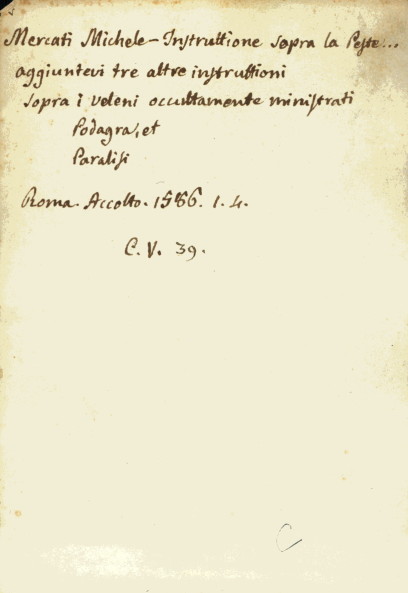 Mercati Michele - Instruttione sopra la Peste...
aggiuntevi tre altre instruttioni
sopra i veleni occultamente ministrati
Podagra, et
Paralisi
Roma. Accolto. 1586. 1. 4.
C. V. 39.
C